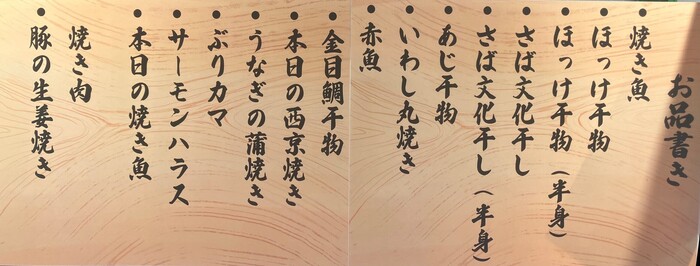 お品書き
焼き魚
●ほっけ干物
●ほっけ干物(半身)
●さば文化干し
●さば文化干し(半身)
●あじ干物
●いわし丸焼き
●赤魚
●金目鯛干物
●本日の西京焼き
●うなぎの蒲焼き
●ぶりカマ
●サーモンハラス
●本日の焼き魚
焼き肉
●豚の生姜焼き